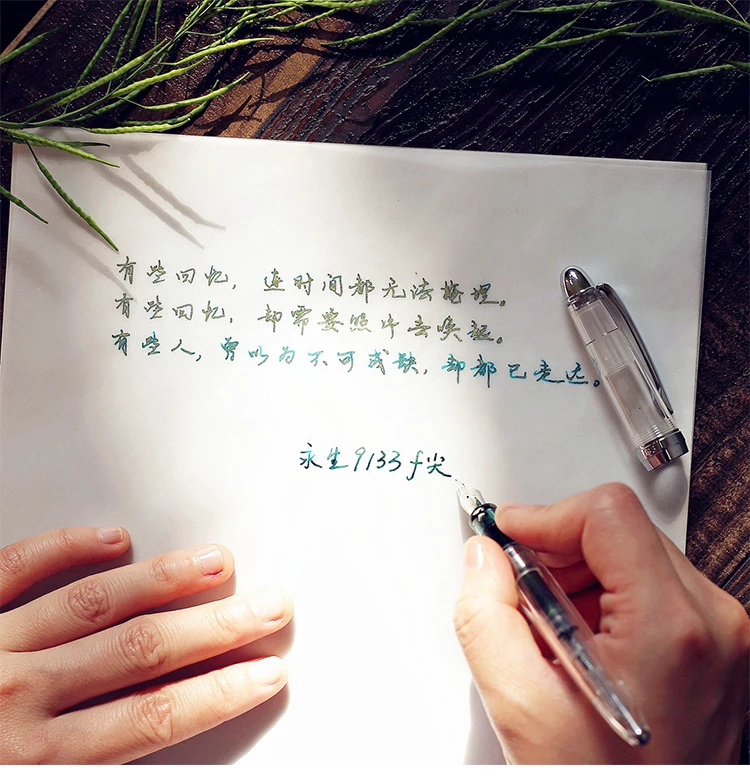 有些回忆，连时间都无法掩埋。
有些回忆，却需要照片去唤起。
有些人，曾以为不可或缺，却都已走远。
永生9133 f尖